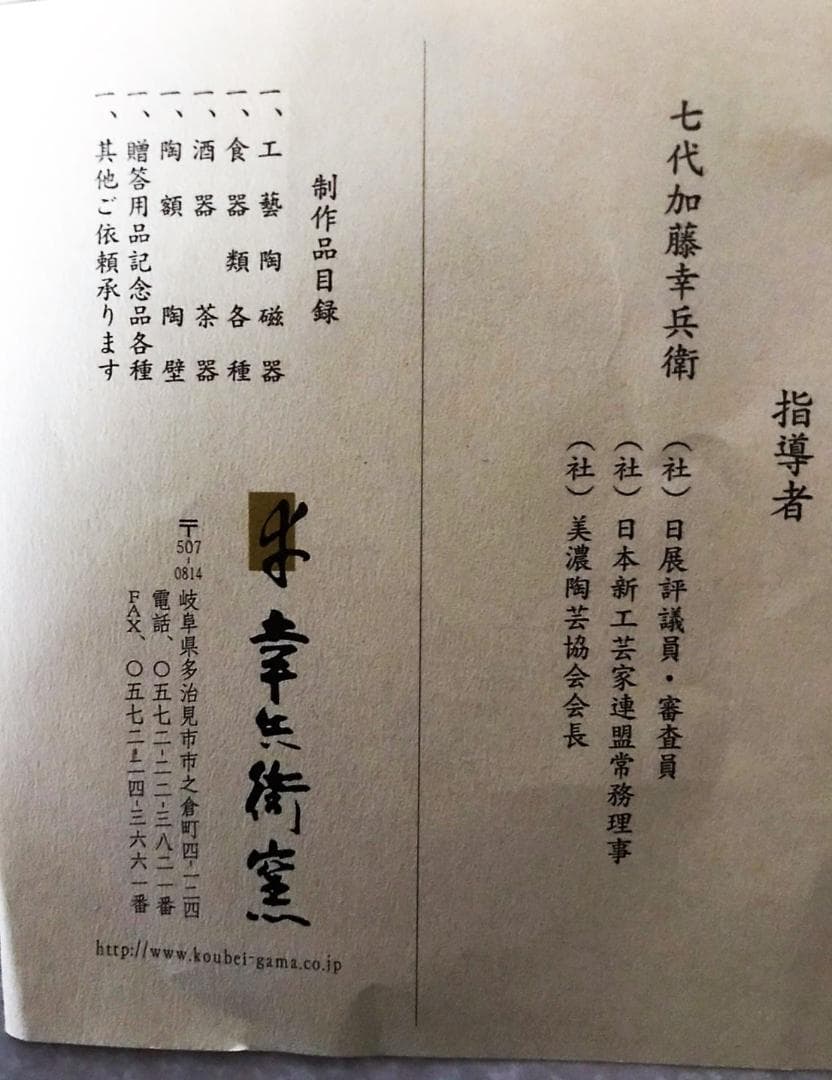 指導者
七代加藤幸兵衛
（社）日展評議員・審査員
（社）日本新工芸家連盟常務理事
（社）美濃陶芸協会会長
制作品目録
一、工藝陶磁器
一、食器類各種
一、酒器 茶器
一、陶額 陶壁
一、贈答用品記念品各種
一、其他ご依頼承ります
幸兵衛窯
〒507-0814
岐阜県多治見市市之倉町四-一二四
電話、〇五七二-二二-三八二一番
FAX、〇五七二-二四-三六六一番
http://www.koubei-gama.co.jp